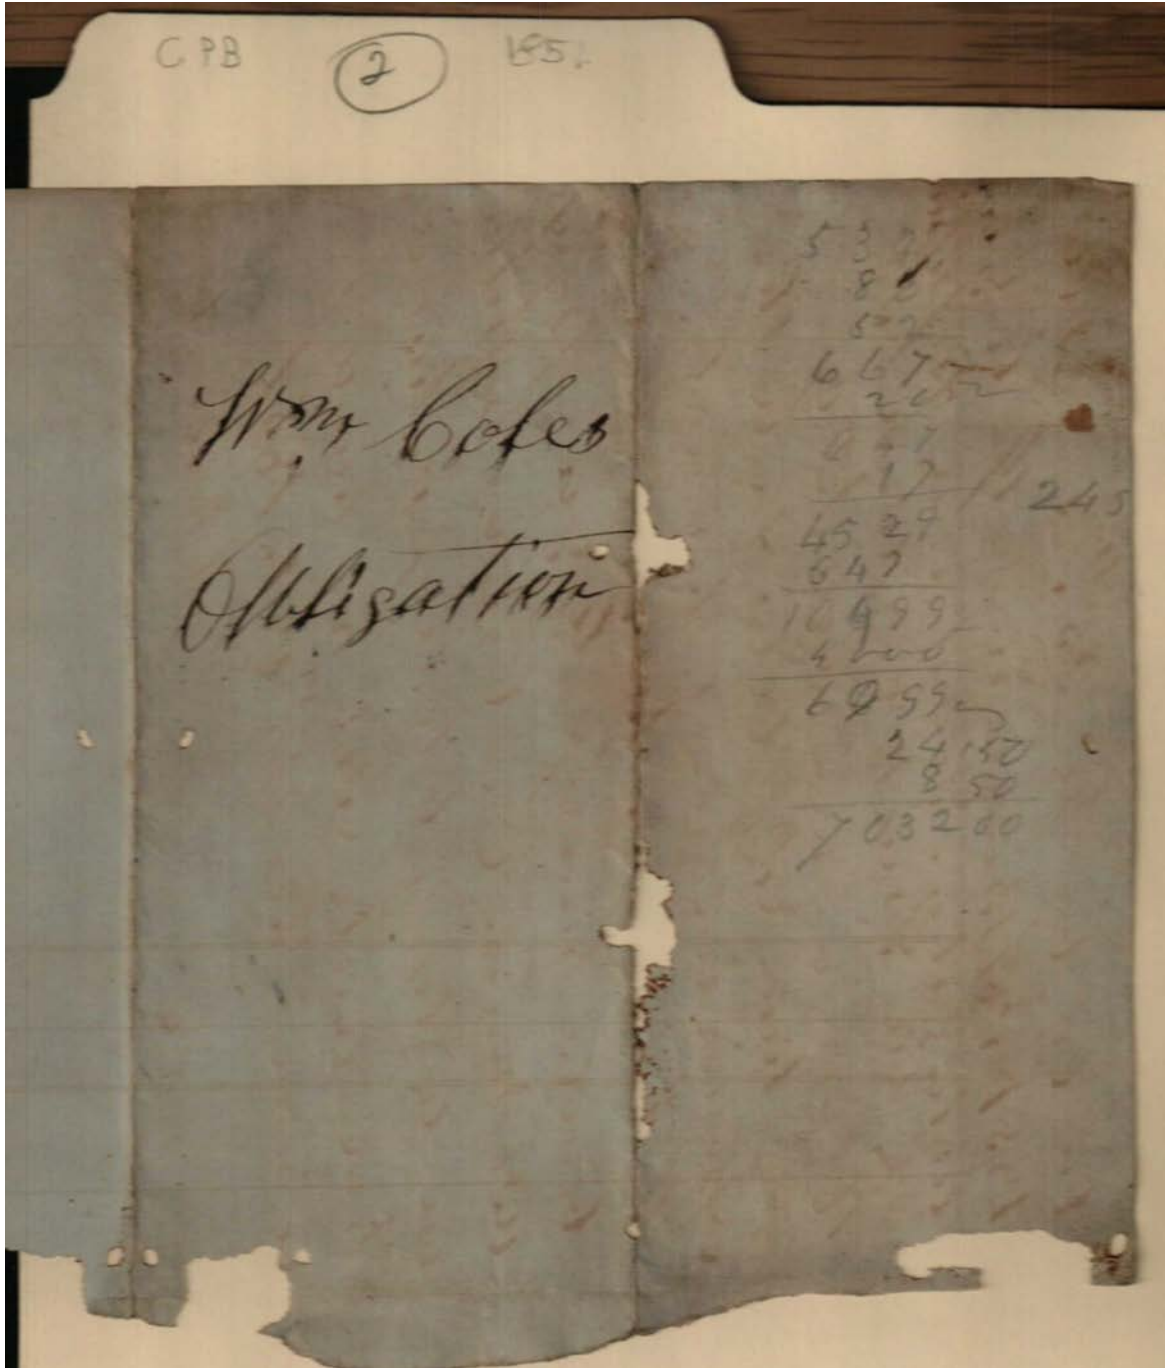 CPB 2 185
Wm Coles
Obligation
537
8
52
667
2
647
17
245
4529
647
10999
4000
6999
24 50
8 50
7032 00